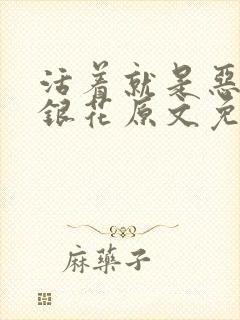 活着就是惡
銀花原文免
麻藥子